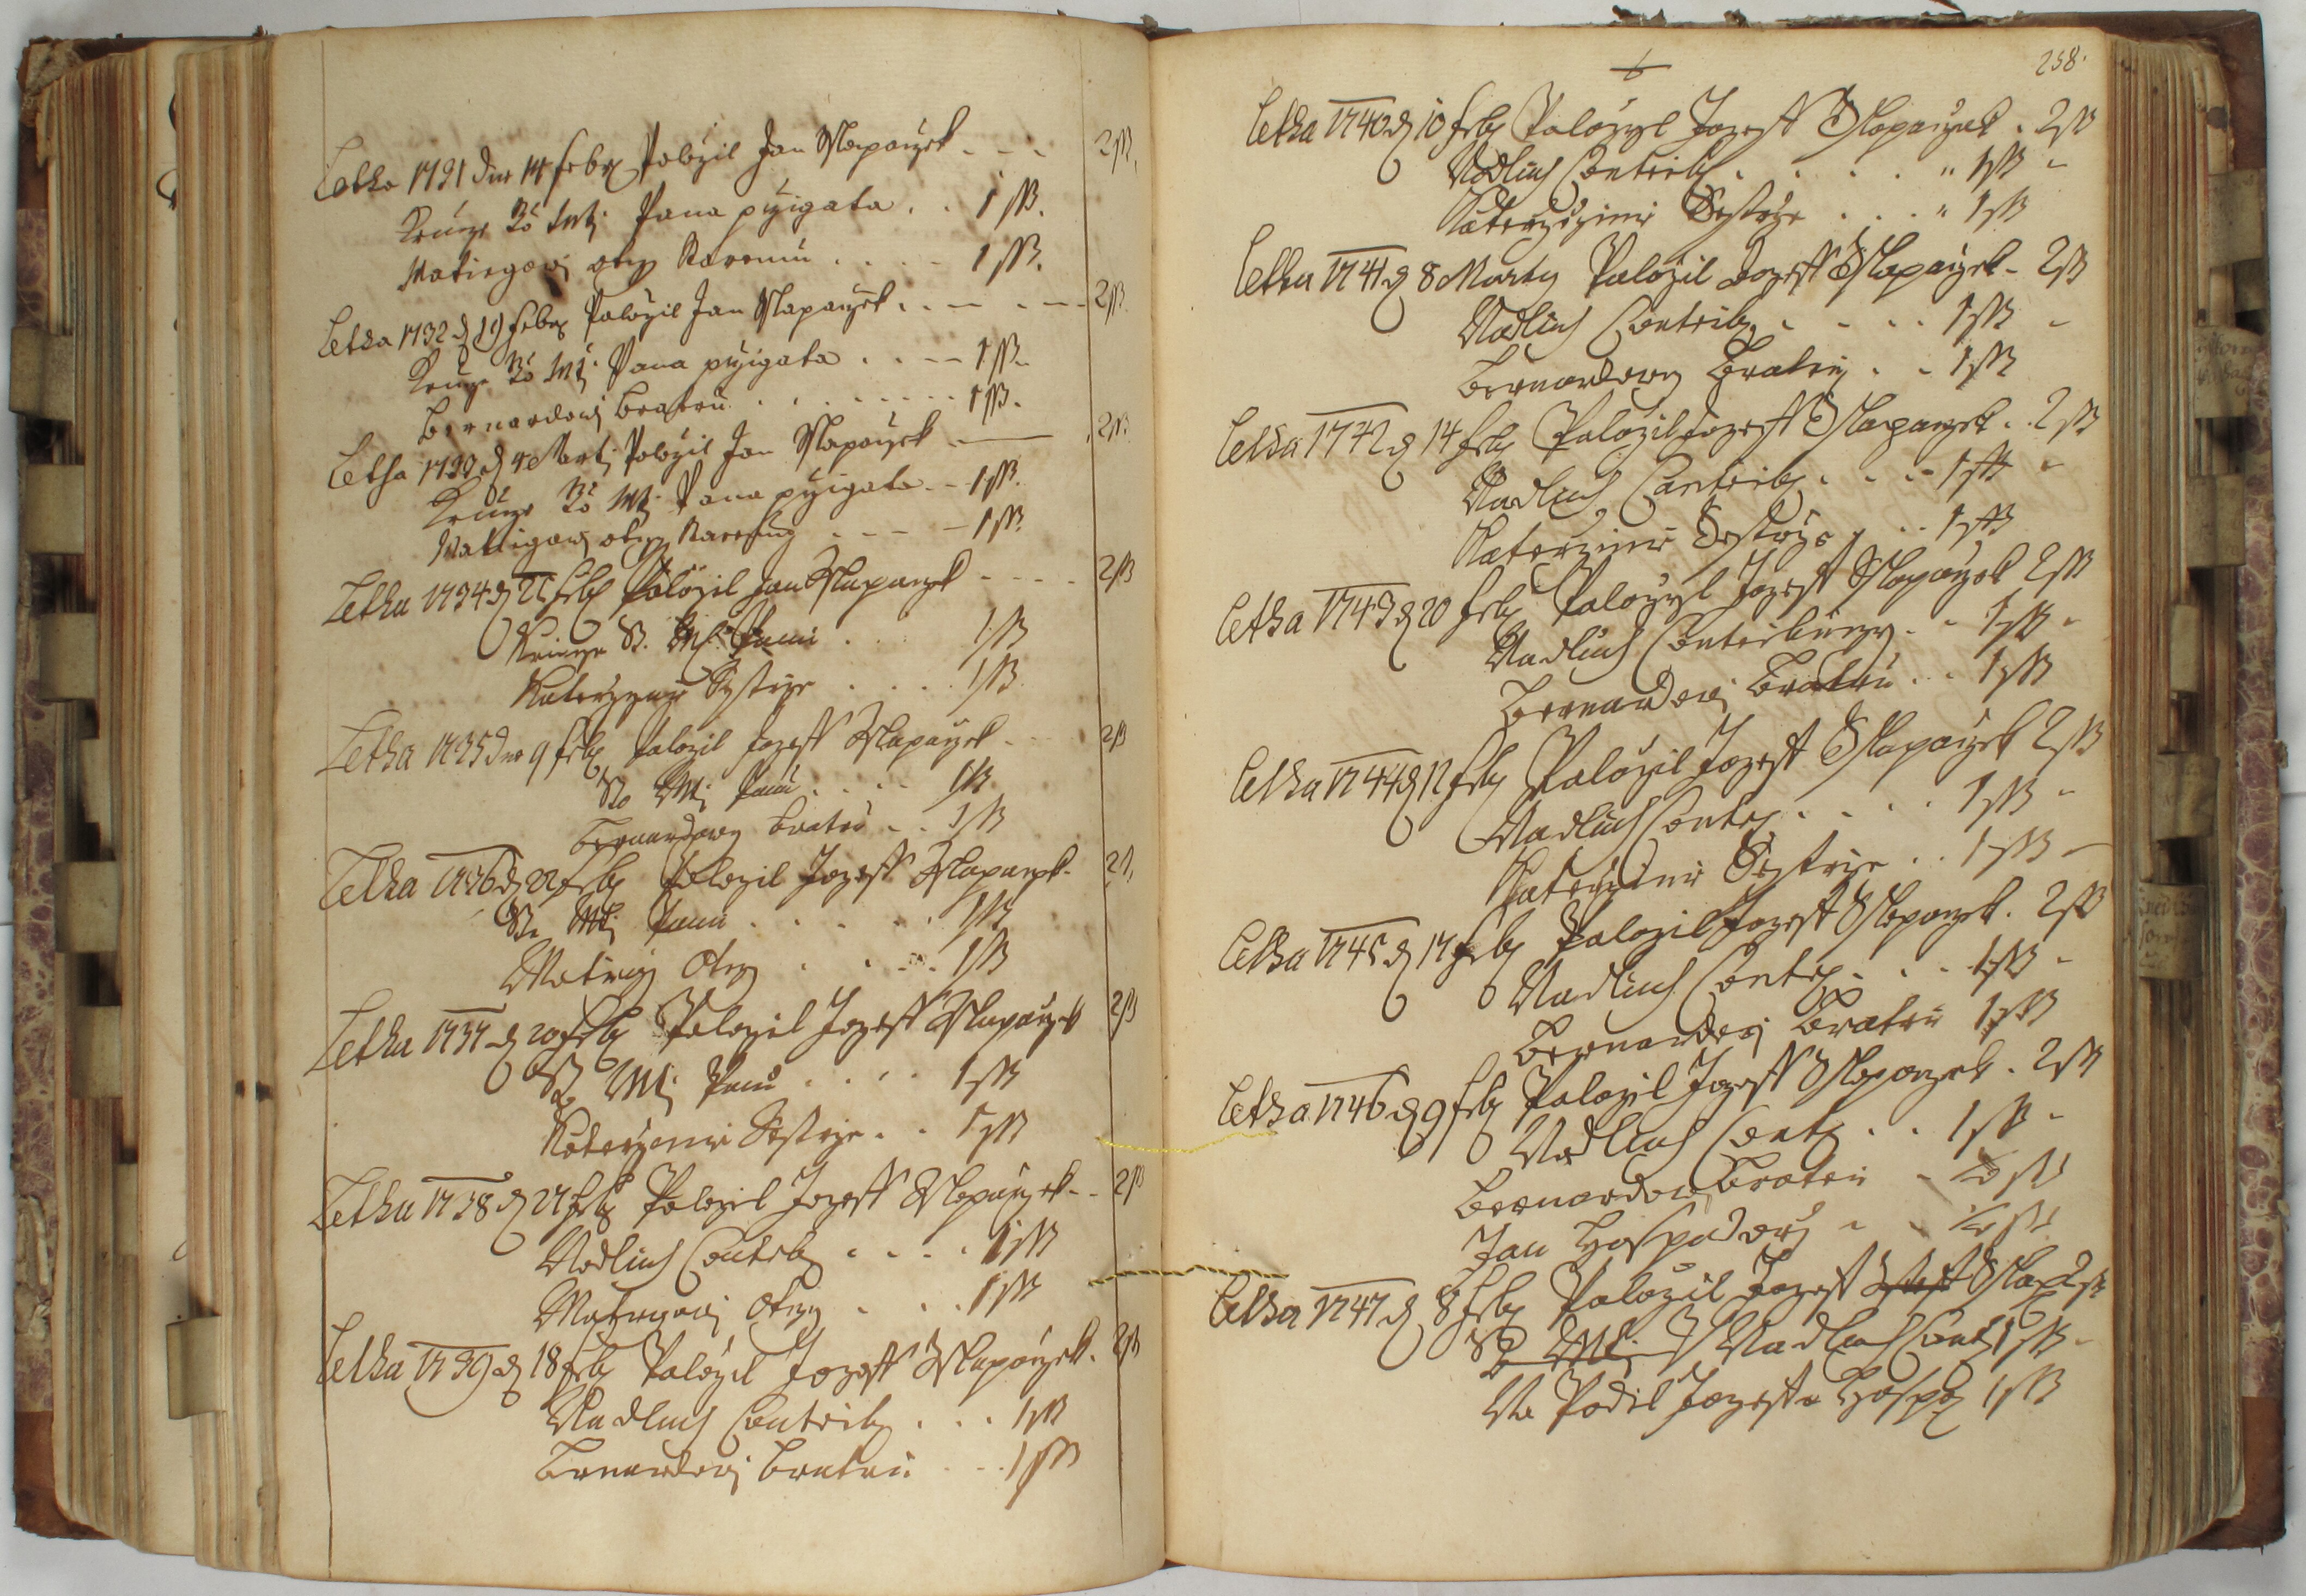 Letha 1731 dne 14 Febr Položil Jan Sslapauzek - - - 2 ß.
K ruce Jeo Mti Pana przigata . . 1 ß.
Matiegowi otcy Karemu . . . . 1 ß.
Letha 1732 d 19 Febr Položil Jan Sslapauzek . . — . — 2 ß.
K ruce Jeo Mti Pana przigata . . — 1 ß.
Bernardowi Bratru . . . . . . . 1 ß.
Letha 1733 d 4 Marti Položil Jan Sslapauzek — 2 ß
K ruce Jeo Mti Pana przigata - - 1 ß.
Mattigowi otcy - - - 1 ß.
Letha 1734 d Feb Položil Jan Sslapauzek - - - - 2 ß
K ruce Mti Panu . . . 1 ß
Katerzynie Sestrze . . . . 1 ß
Letha 1735 dne 9 Feb Položil Jozeff Sslapauzek - - 2 ß
Jeo Mti Panu . . . . 1 ß
Bernardowy Bratru . . 1 ß
Letha 1736 d 22 Feb Položil Jozeff Sslapauzek - 2 ß
Mti Panu . . . . . . 1 ß
Otcy . . . . 1 ß
Letha 1737 d 20 Feb Položil Jozeff Sslapauzek 2 ß
Mti Panu . . . . 1 ß
Katerzynie Sestrze . . 1 ß
Letha 1738 d 27 Feb Položil Jozeff Sslapauzek - - 2 ß
Nadlius Contrib . . . . 1 ß
Matiegowi Otcy . . . 1 ß
Letha 1739 d 18 Feb Položil Jozeff Sslapauzek . 2 ß
Nadlius Contrib . . . 1 ß
Bernardowi Bratru - - 1 ß
6
258.
Letha 1740 d 10 Feb Položyl Jozeff Sslapauzek . 2 ß
Nadlius Contrib . . . . " 1 ß -
Katerzyinie Sestrze . . . " 1 ß
Letha 1741 d 8 Marty Položil Jozeff Sslapauzek - 2 ß
Nadlius Contrib . . . . 1 ß -
Bernardowy Bratru . . 1 ß
Letha 1742 d 14 Feb Položil Jozeff Sslapauzek . . 2 ß
Nadlius Contrib . . . - 1 ß -
Katerzinie Sestrze . . . 1 ß
Letha 1743 d 20 Feb Položyl Jozeff Sslapauzek 2 ß
Nadlius Contribuczy . - 1 ß -
Bernardowi Bratru . . 1 ß
Letha 1744 d 12 Feb Položil Jozeff Sslapauzek 2 ß
Nadlius Contr . . . . 1 ß -
Katerzinie Sestrze . . 1 ß —
Letha 1745 d 17 Feb Položil Jozeff Sslapauzek . 2 ß
Nadlius Contr . . - 1 ß -
Bernardowi Bratru 1 ß
Letha 1746 d 9 Feb Položil Jozeff Sslapauzek . 2 ß
Nadlius Contr . . 1 ß -
Bernardowi Bratru - ½ ß
Jan Hospodarz - - ½ ß
Letha 1747 d 8 Feb Položil Jozeff Sslap 2 ß
Nadlius Cont 1 ß -
Na Podil Jozeffa Hosp 1 ß